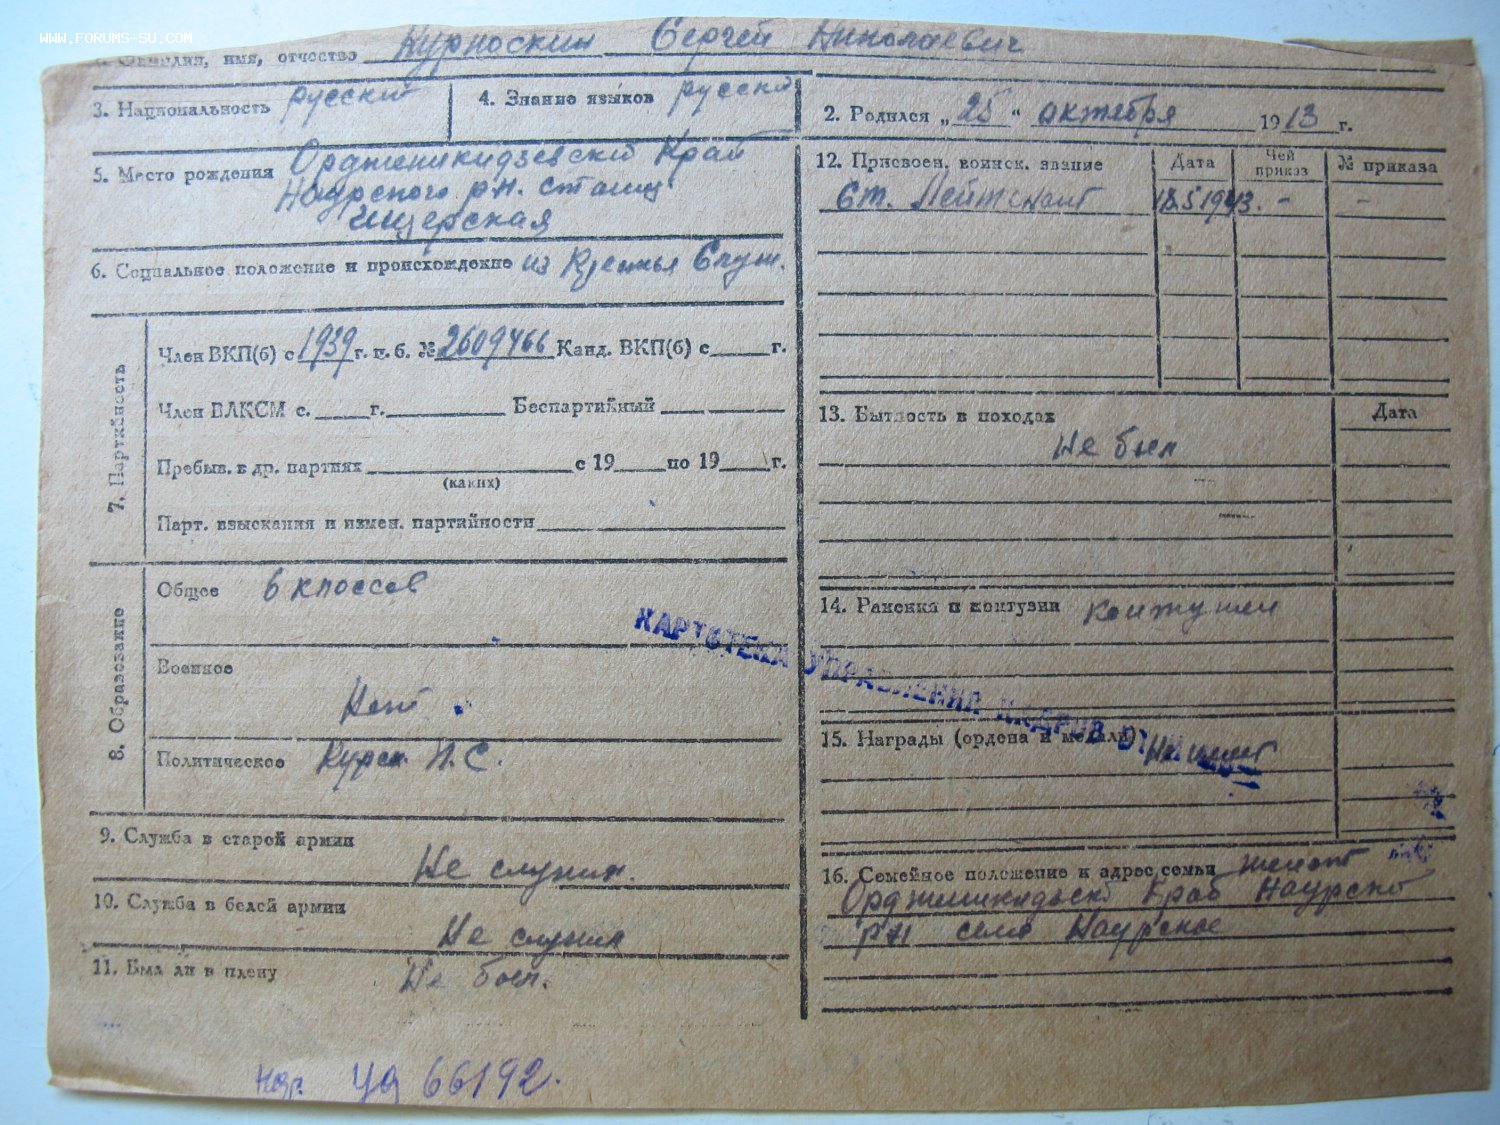 WWW.FORUMS-SU.COM
1. Фамилия, имя, отчество Курноскин Сергей Николаевич
3. Национальность русский
4. Знание языков русский
2. Родился „25" октября 1913 г.
5. Место рождения Орджоникидзевский Край
Наурского р-н. станиц
Ищерская
6. Социальное положение и происхождение из Крестья Служ.
7. Партийность
Член ВКП(б) с 1939 г. п. б. № 2609466 Канд. ВКП(б) с г.
Член ВЛКСМ с. г. Беспартийный
Пребыв. в др. партиях с 19 по 19 г.
(каких)
Парт. взыскания и измен. партийности
8. Образование
Общее 6 классов
Военное
Нет
Политическое Курсы П.С.
9. Служба в старой армии
Не служил.
10. Служба в белой армии
Не служил
11. Был ли в плену Не был.
12. Присвоен. воинск. звание Дата Чей приказ № приказа
Ст. Лейтенант 18.5 1943. - -
13. Бытность в походах Дата
Не был
14. Ранения и контузии контужен
КАРТОТЕКА УПРАВЛЕНИЯ КАДРОВ
15. Награды (ордена и медали) Не имеет
16. Семейное положение и адрес семьи женат
Орджоникидзевский Край Наурский
р-н село Наурское
уд 66192.